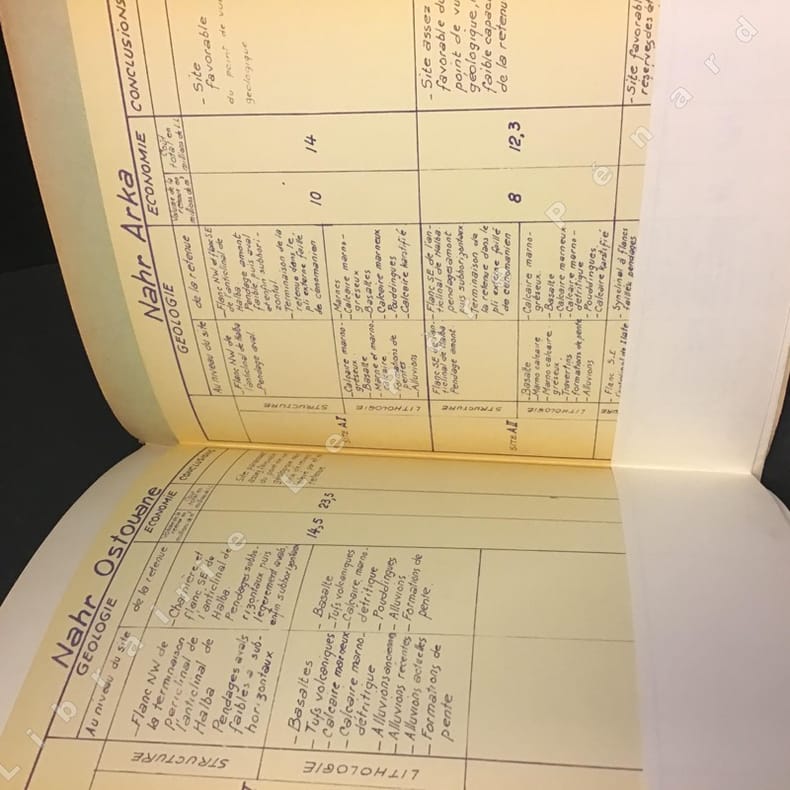 Nahr Ostouane
GEOLOGIE
ECONOMIE
CONCLUSIONS
Au niveau du site
de la retenue
STRUCTURE
-Flanc NW de
la terminaison
periclinal de
l'anticlinal de
Halba
Pendages avals
faibles à sub-
horizontaux
-Charnière et
flanc SE de
l'anticlinal de
Halba.
Pendages subho-
rizontaux puis
légèrement avals
enfin subhorizontaux
14,5
23,5
LITHOLOGIE
-Basaltes
-Tufs volcaniques
-Calcaire marneux
-Calcaire marno-
détritique
-Alluvions anciennes
-Alluvions recentes
-Alluvions actuelles
-Formations de
pente
-Basalte
-Tufs volcaniques
-Calcaire marno-
detritique
-Pouddingues
-Alluvions
-Formations de
pente.
Nahr Arka
GEOLOGIE
ECONOMIE
CONCLUSIONS
Au niveau du site
de la retenue
SITE AI
STRUCTURE
-Flanc NW de
l'anticlinal de Halba
-Pendage aval.
-Flanc NW et flanc SE
de l'anticlinal de
Halba
-Pendage amont
faible puis aval
et enfin subhori-
zontal
-Terminaison de la
retenue dans le
pli externe faillé
de cénomanien
10
14
- Site
favorable
du point de vue
geologique
LITHOLOGIE
-Calcaire marno-
gréseux
-Basalte
-Marne et marno-
calcaire
-Formations de
pentes
-Alluvions
-Marne
-Calcaire marno-
gréseux
-Basaltes
-Calcaire marneux
-Pouddingues
-Calcaire karstifié
SITE AII
STRUCTURE
-Flanc SE de l'an-
ticlinal de Halba
Pendage amont
-Flanc SE de l'an-
ticlinal de Halba
-pendages amont
puis subhorizontaux
-Terminaison de
la retenue dans le
pli externe faillé
de cénomanien
8
12,3
- Site assez
favorable du
point de vue
géologique,
faible capac
de la retenu
LITHOLOGIE
-Basalte
-Marno calcaire
-Marno calcaire
gréseux
-Travertins
-formations de pente
-Alluvions
-Calcaire marno-
gréseux.
-Basalte
-Calcaire marneux
-Calcaire marno-
détritique
-Pouddingues
-Calcaire karstifié
-Flanc S.E
-Synclinal à flancs
faibles pendages
-Site favorabl
réserves des ét
Librairie Le Pénard